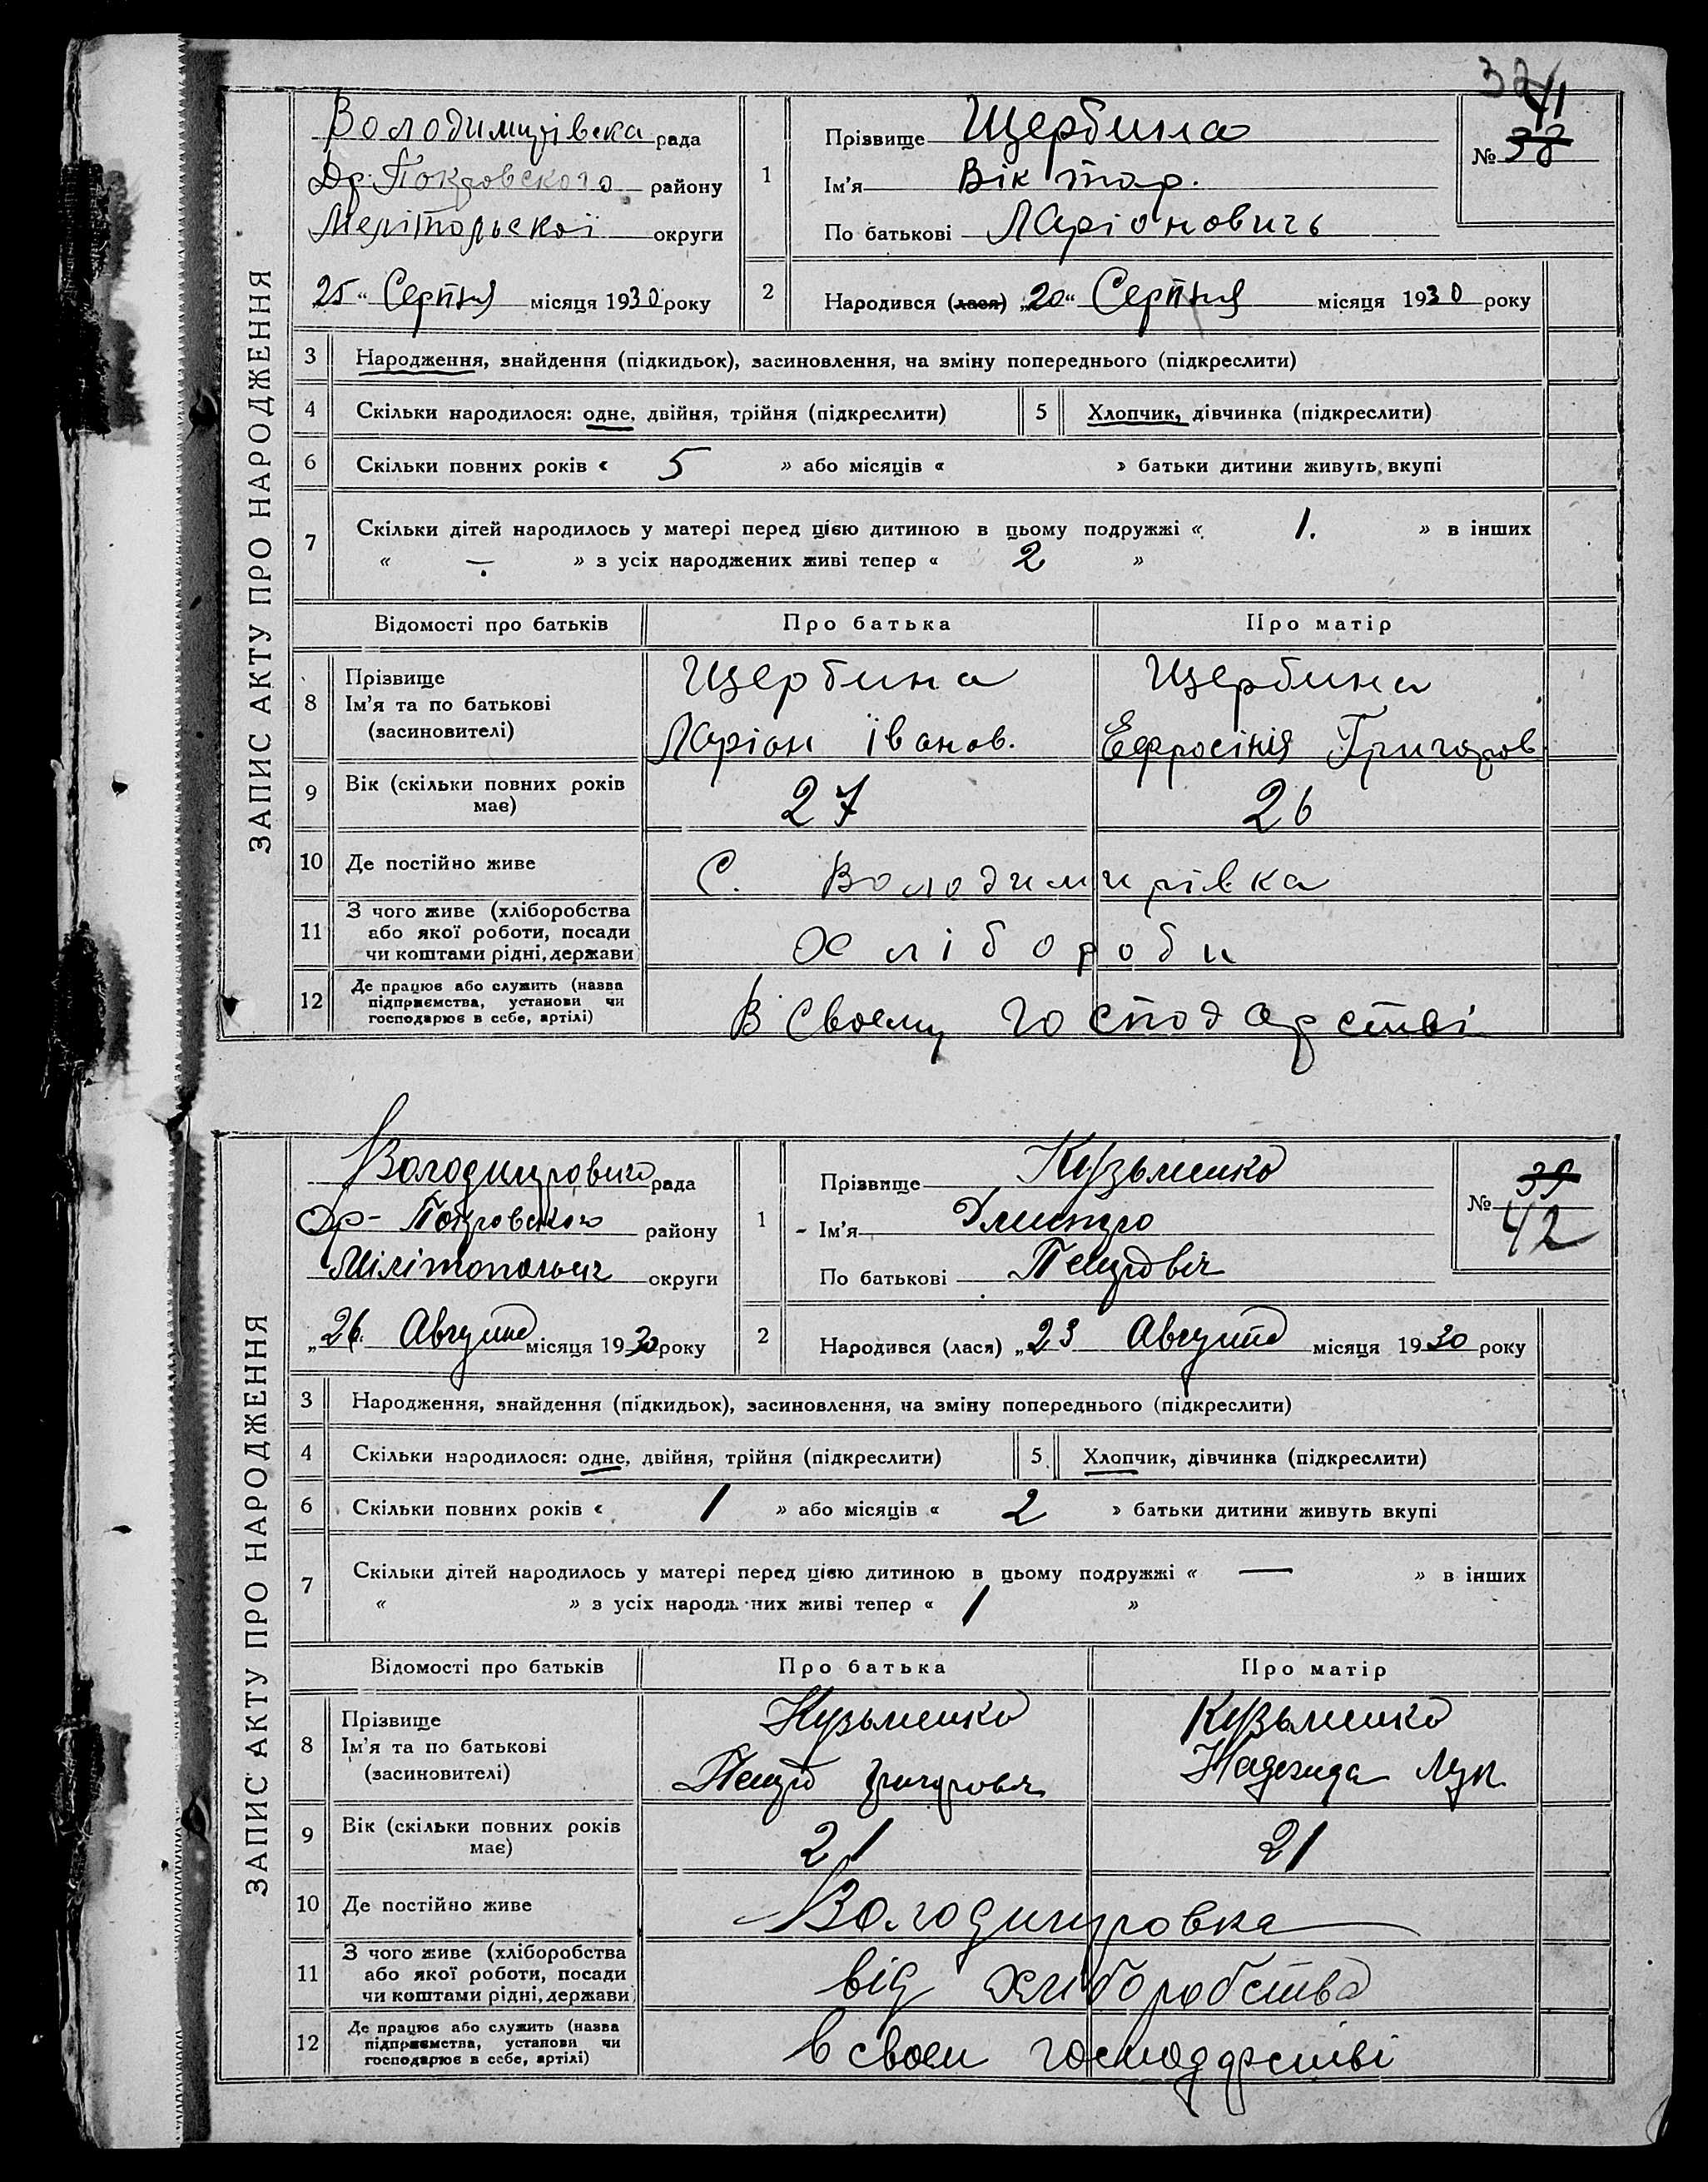 32
41
№ 38
ЗАПИС АКТУ ПРО НАРОДЖЕННЯ
Володимирівска рада
Др. Покровского району
Мелітопольскої округи
„25“ Серпня місяця 1930 року
1
Прізвище Щербина
Ім'я Віктор.
По батькові Ларіоновичь
2
Народився (лася) „20“ Серпня місяця 1930 року
3 Народження, знайдення (підкидьок), засиновлення, на зміну попереднього (підкреслити)
4 Скільки народилося: одне, двійня, трійня (підкреслити) 5 Хлопчик, дівчинка (підкреслити)
6 Скільки повних років « 5 » або місяців « » батьки дитини живуть вкупі
7 Скільки дітей народилось у матері перед цією дитиною в цьому подружжі « 1. » в інших
« — » з усіх народжених живі тепер « 2 »
Відомості про батьків Про батька Про матір
8 Прізвище Ім'я та по батькові (засиновителі)
Щербина Щербина
Ларіон Іванов. Ефросінія Григоров
9 Вік (скільки повних років має) 27 26
10 Де постійно живе С. Володимирівка
11 З чого живе (хліборобства або якої роботи, посади чи коштами рідні, держави Хлібороби
12 Де працює або служить (назва підприємства, установи чи господарює в себе, артілі) В своєму господарстві
ЗАПИС АКТУ ПРО НАРОДЖЕННЯ
Володимировска рада
Др- Покровского району
округи
„26. Августа місяця 1930 року
1
Прізвище Кузьменко
Ім'я Дмитро
По батькові Петровіч
№ 39
42
2
Народився (лася) „23 Августа місяця 1930 року
3 Народження, знайдення (підкидьок), засиновлення, на зміну попереднього (підкреслити)
4 Скільки народилося: одне, двійня, трійня (підкреслити) 5. Хлопчик, дівчинка (підкреслити)
6 Скільки повних років « 1 » або місяців « 2 » батьки дитини живуть вкупі
7 Скільки дітей народилось у матері перед цією дитиною в цьому подружжі « — » в інших
« » з усіх народж них живі тепер « 1 »
Відомості про батьків Про батька Про матір
8 Прізвище Ім'я та по батькові (засиновителі)
Кузьменко Кузьменко
Петро Григоровіч Надежда Лук
9 Вік (скільки повних років має) 21 21
10 Де постійно живе Володимировка
11 З чого живе (хліборобства або якої роботи, посади чи коштами рідні, держави) від хліборобства
12 Де працює або служить (назва підприємства, установи чи господарює в себе, артілі) в своєм господарстві